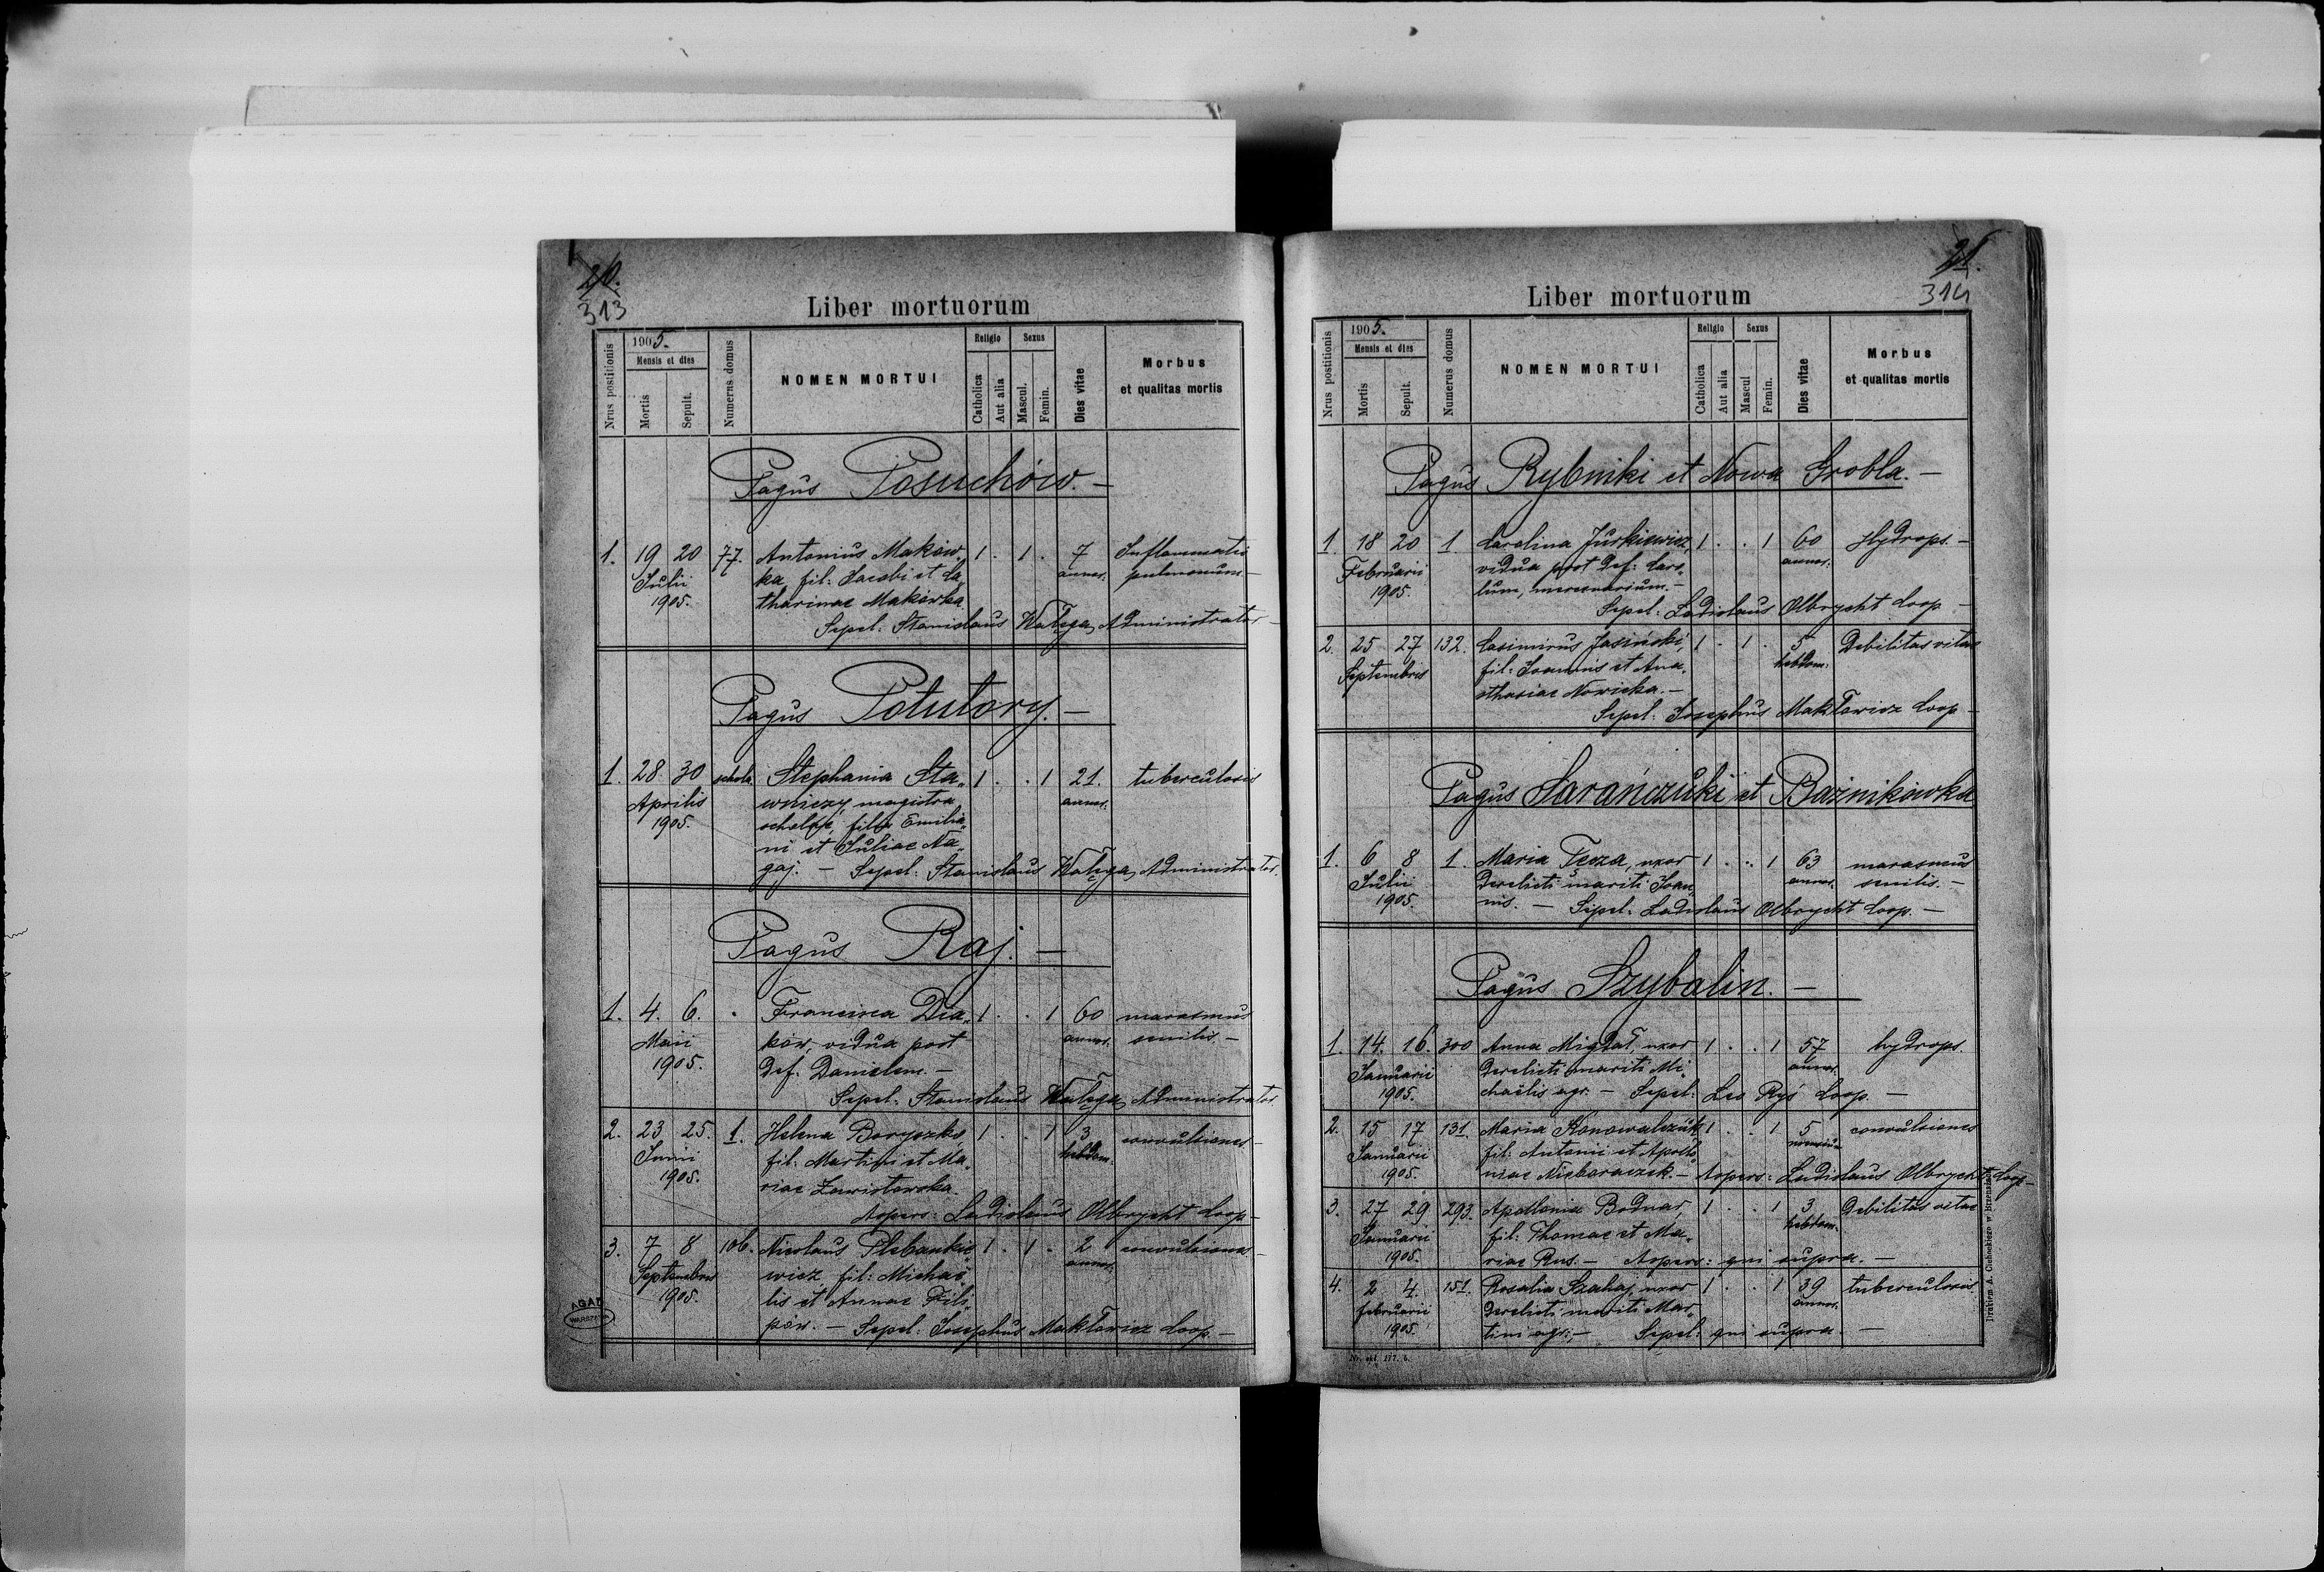 20.
313
Liber mortuorum
Nrus postitionis
1905.
Mensis et dies
Mortis
Sepult.
Numerus domus
NOMEN MORTUI
Religio
Catholica
Aut alia
Sexus
Mascul.
Femin.
Dies vitae
Morbus
et qualitas mortis
Pagus Posuchów. —
1. 19 20 77. Antonius Maków„ 1 . 1 . 7 Inflammatio
Julii ka, fil: Jacobi et Ca„ annor. pulmonum —
1905. tharinae Makówka.
Sepel: Stanislaus Wałęga, Administrator —
Pagus Potutory. —
1. 28 30 schola Stephania Sta„ 1 . . 1 21. tuberculosis
Aprilis wniczy, magistra annor.
1905. scholae, filia Emilia„
ni et Juliae Na„
gaj. — Sepel: Stanislaus Wałęga, Administrator.
Pagus Raj. —
1. 4. 6. . Francisca Dia„ 1 . . 1 60 marasmus
Maii ków, vidua post annor. senilis. —
1905. def: Danielem. —
Sepel: Stanislaus Wałęga, Administrator
2. 23 25. 1. Helena Boryszko, 1 . . 1 3 convulsiones —
Junii fil: Martini et Ma„ hebdom.
1905. riae Zawistowska.
Aspers: Ladislaus Olbrycht Coop —
3. 7 8 106. Nicolaus Plebankie„ 1 . 1 . 2 convulsiones —
Septembris wicz, fil: Michaë„ annor.
1905. lis et Annae Fili„
pów. — Sepel: Josephus Makłowicz Coop —
AGAD
WARSZAWA
21.
314
Liber mortuorum
Nrus postitionis
1905.
Mensis et dies
Mortis
Sepult.
Numerus domus
NOMEN MORTUI
Religio
Catholica
Aut alia
Sexus
Mascul
Femin.
Dies vitae
Morbus
et qualitas mortis
Pagus Rybniki et Nowa Grobla. —
1. 18 20 1. Carolina Jurkiewicz, 1 . . 1 60 Hydrops. —
Februarii vidua post def: Caro„ annor.
1905. lum, mercenarium. —
Sepel: Ladislaus Olbrycht Coop —
2. 25 27 132. Casimirus Jasiński, 1 . 1 . 5 Debilitas vitae
Septembris fil: Joannis et Ana„ hebdom:
sthasiae Nowicka. —
Sepel: Josephus Makłowicz Coop —
Pagus Sarańczuki et Baznikówka
1. 6 8 1. Maria Tęcza, uxor 1 . . 1 63 marasmus
Julii derelicti mariti Joan„ annor. senilis. —
1905. nis. — Sepel: Ladislaus Olbrycht Coop. —
Pagus Szybalin. —
1. 14. 16. 300 Anna Migdał, uxor 1 . . 1 57 hydrops.
Januarii derelicti mariti Mi„ annor.
1905. chaëlis agr. — Sepel: Leo Ryś Coop. —
2. 15 17 131. Maria Konowalczuk 1 . . 1 5 convulsiones
Januarii fil: Antonii et Apollo„ mensium
1905. niae Niebaraczek. — Aspers: Ladislaus Olbrycht Coop —
3. 27 29 293. Apollonia Bodnar, 1 . . 1 3 Debilitas vitae
Januarii fil: Thomae et Ma„ hebdom.
1905. riae Rus. — Aspers: qui supra. —
4. 2 4. 151. Rosalia Szahaj, uxor 1 . . 1 39 tuberculosis
februarii derelicti mariti Mar„ annor.
1905. tini agr. — Sepel: qui supra. —